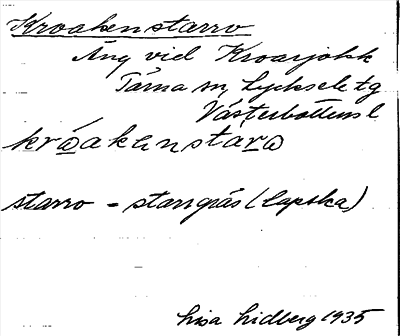 Kroakenstarro
Äng vid Kroarjokk
Tärna sn, Lycksele tg
Västerbottens l
kråakenstarω
starro - starrgräs (lapska)
Lisa Lidberg 1935